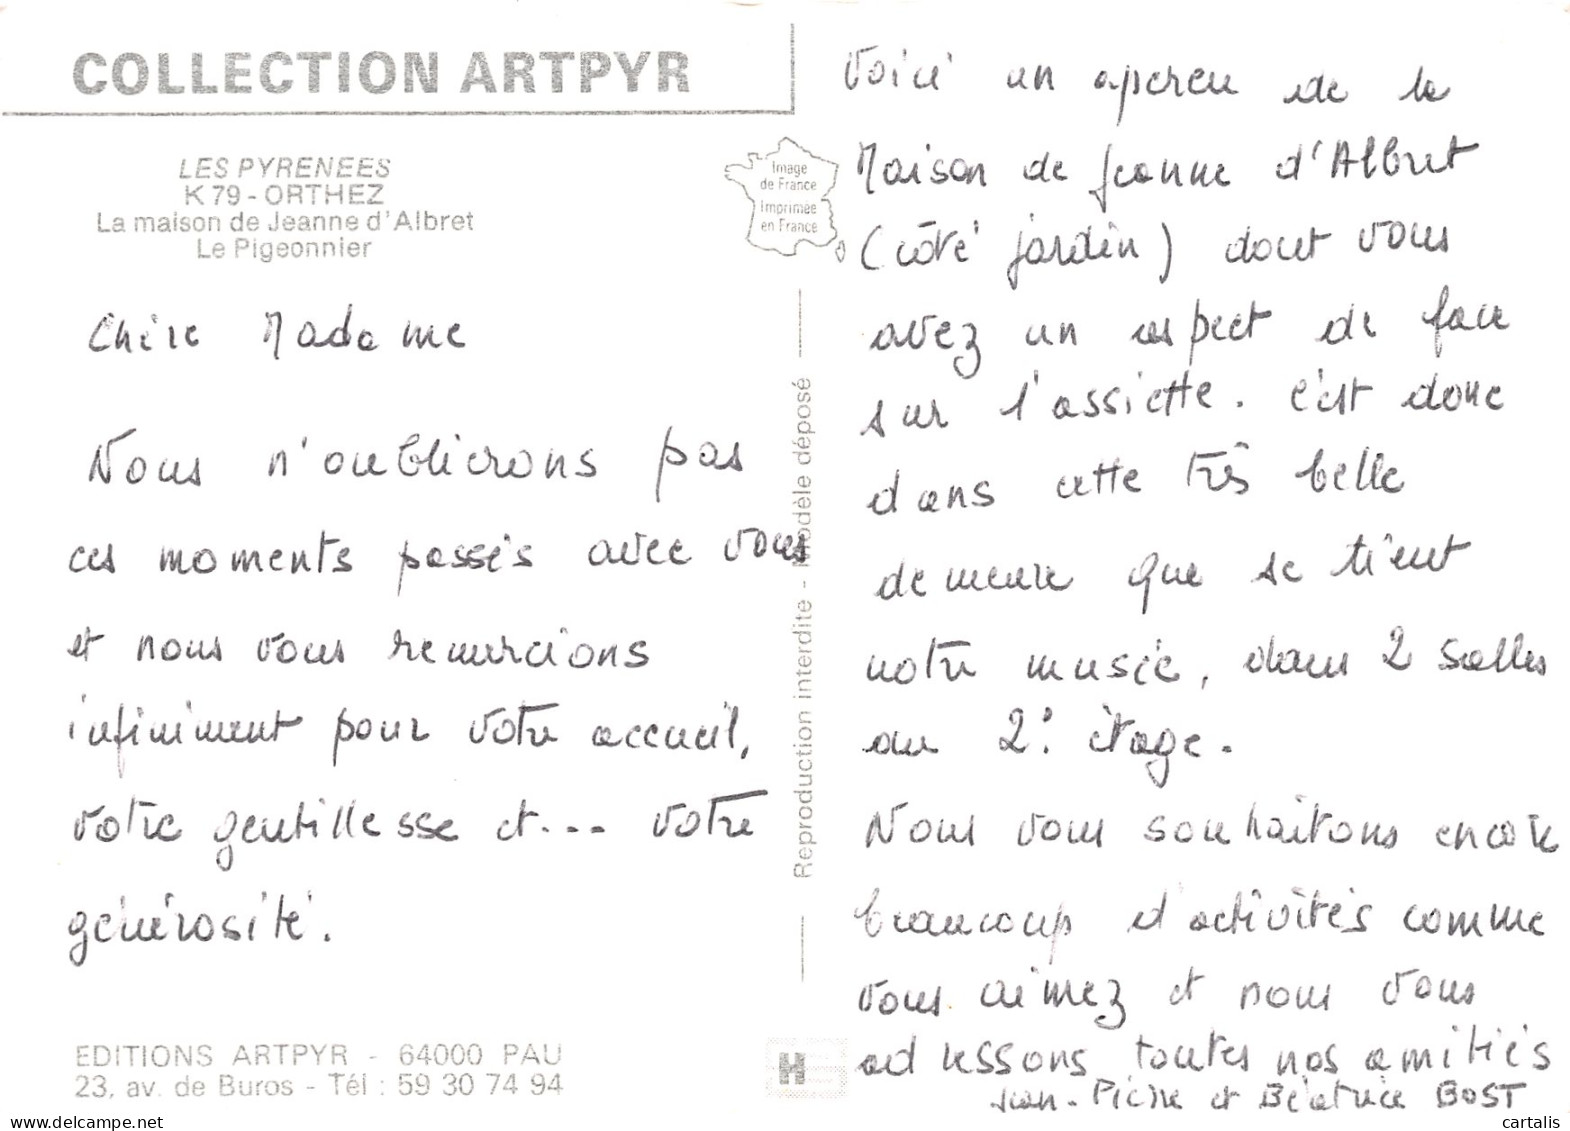 COLLECTION ARTPYR
LES PYRENEES
K 79 - ORTHEZ
La maison de Jeanne d'Albret
Le Pigeonnier
Chère Madame
Nous n'oublierons pas
ces moments passés avec vous
et nous vous remercions
infiniment pour votre accueil,
votre gentillesse et... votre
générosité.
EDITIONS ARTPYR - 64000 PAU
23, av. de Buros - Tél : 59 30 74 94
Image
de France
Imprimée
en France
Reproduction interdite - Modèle déposé
H
Voici un apercu de la
Maison de Jeanne d'Albret
(côté jardin) dont vous
avez un aspect de face
sur l'assiette. C'est donc
dans cette très belle
demeure que se tient
notre musée, dans 2 salles
au 2° étage.
Nous vous souhaitons encore
beaucoup d'activités comme
vous aimez et nous vous
adressons toutes nos amitiés
Jean-Pierre et Béatrice BOST
cartalis